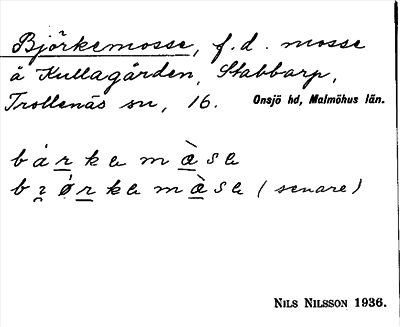 Björkemosse, f.d. mosse
å Kullagården, Stabbarp,
Trollenäs sn, 16. Onsjö hd, Malmöhus län.
bárke mæ̀se
bi̯ǿrke mæ̀se (senare)
NILS NILSSON 1936.